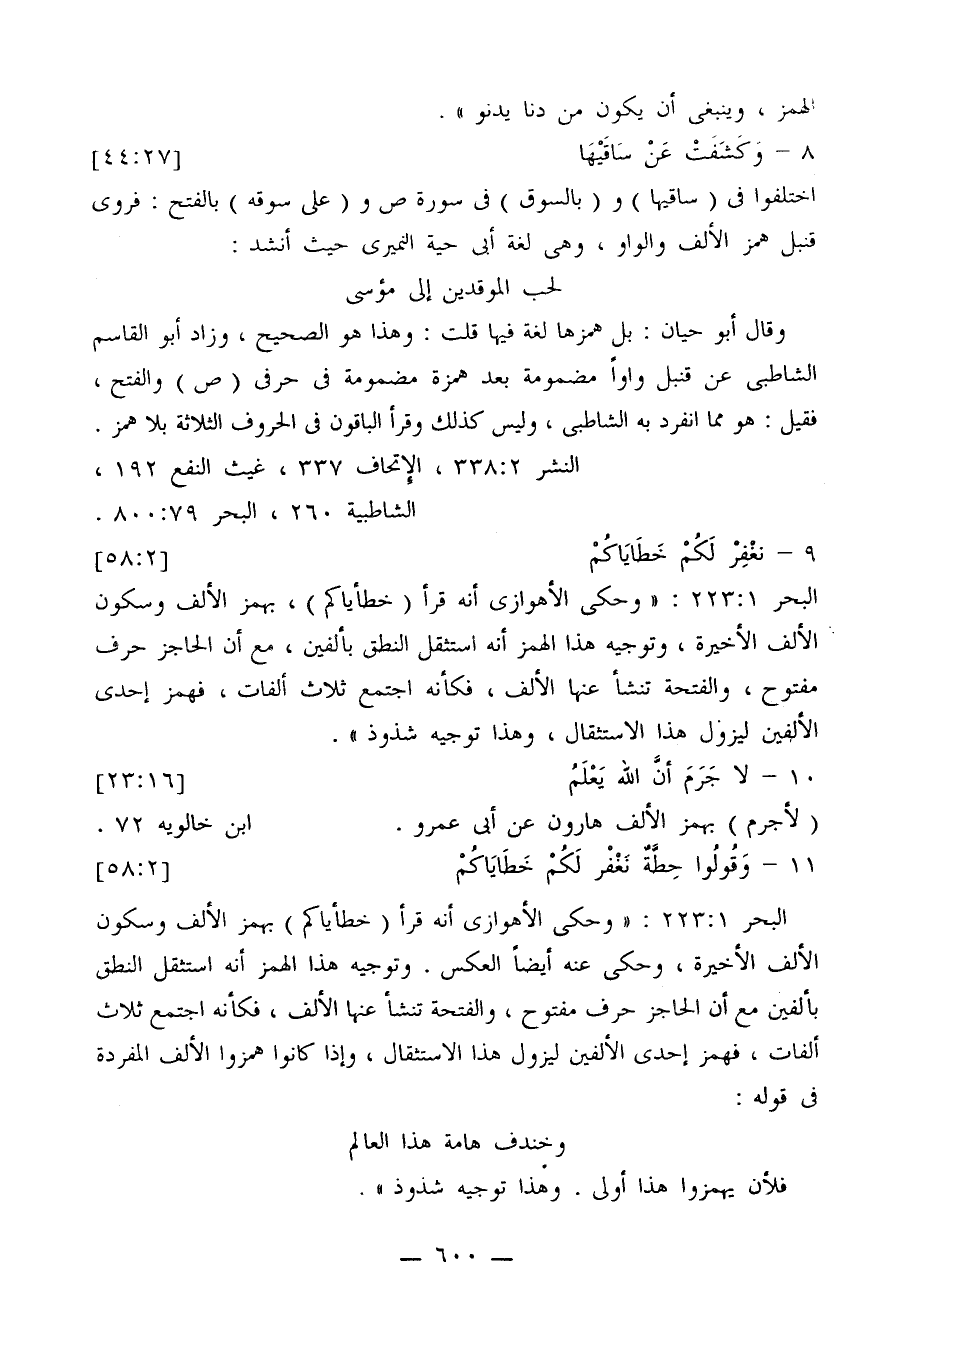 الهمز ، وينبغى أن يكون من دنا يدنو » .
٨ – وَكَشَفَتْ عَنْ سَاقَيْهَا [٤٤:٢٧]
اختلفوا فى ( ساقيها ) و ( بالسوق ) فى سورة ص و ( على سوقه ) بالفتح : فروى
قنبل همز الألف والواو ، وهى لغة أبى حية النميرى حيث أنشد :
لحب الموقدين إلى مؤسى
وقال أبو حيان : بل همزها لغة فيها قلت : وهذا هو الصحيح ، وزاد أبو القاسم
الشاطبى عن قنبل واواً مضمومة بعد همزة مضمومة فى حرفى ( ص ) والفتح ،
فقيل : هو مما انفرد به الشاطبى ، وليس كذلك وقرأ الباقون فى الحروف الثلاثة بلا همز .
النشر ٣٣٨:٢ ، الإتحاف ٣٣٧ ، غيث النفع ١٩٢ ،
الشاطبية ٢٦٠ ، البحر ٨٠٠:٧٩ .
٩ – نغْفِرْ لَكُمْ خَطَايَاكُمْ [٥٨:٢]
البحر ٢٢٣:١ : « وحكى الأهوازى أنه قرأ ( خطأياكم ) ، بهمز الألف وسكون
الألف الأخيرة ، وتوجيه هذا الهمز أنه استثقل النطق بألفين ، مع أن الحاجز حرف
مفتوح ، والفتحة تنشأ عنها الألف ، فكأنه اجتمع ثلاث ألفات ، فهمز إحدى
الألفين ليزول هذا الاستثقال ، وهذا توجيه شذوذ » .
١٠ – لا جَرَمَ أنَّ الله يَعْلَمُ [٢٣:١٦]
( لأجرم ) بهمز الألف هارون عن أبى عمرو . ابن خالويه ٧٢ .
١١ – وَقُولُوا حِطَّةٌ نَغْفْر لَكُمْ خَطَايَاكُمْ [٥٨:٢]
البحر ٢٢٣:١ : « وحكى الأهوازى أنه قرأ ( خطأياكم ) بهمز الألف وسكون
الألف الأخيرة ، وحكى عنه أيضاً العكس . وتوجيه هذا الهمز أنه استثقل النطق
بألفين مع أن الحاجز حرف مفتوح ، والفتحة تنشأ عنها الألف ، فكأنه اجتمع ثلاث
ألفات ، فهمز إحدى الألفين ليزول هذا الاستثقال ، وإذا كانوا همزوا الألف المفردة
فى قوله :
وخندف هامة هذا العالم
فلأن يهمزوا هذا أولى . وهذا توجيه شذوذ » .
— ٦٠٠ —